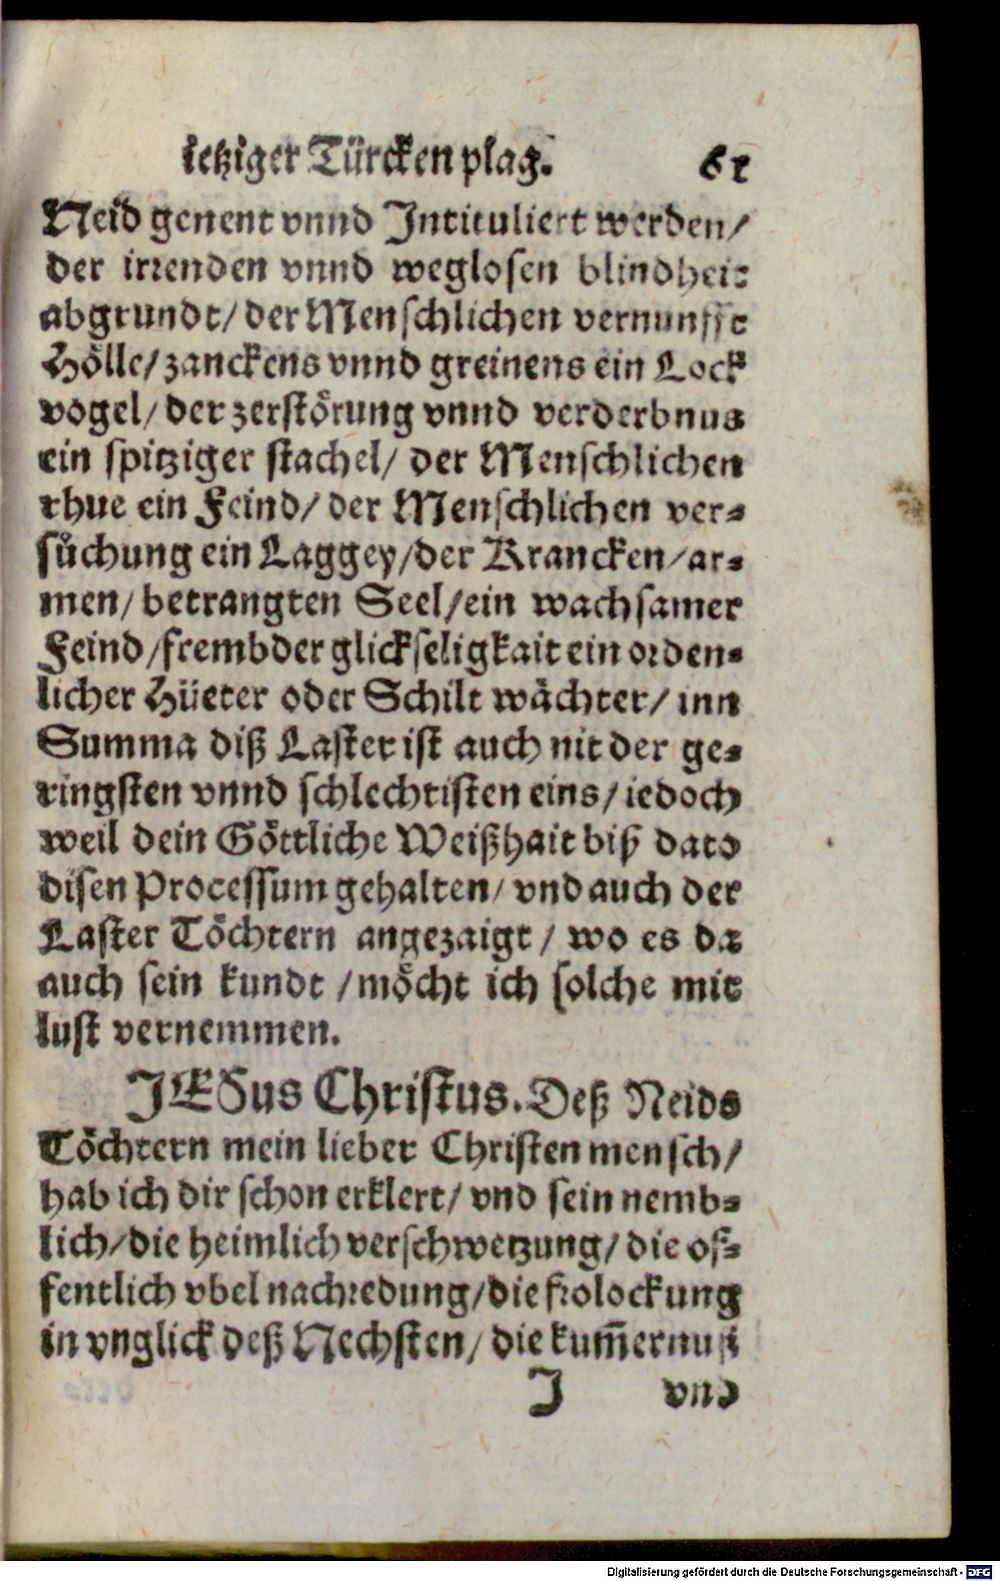 ietziger Türcken plag. 61
Neid genent vnnd Intituliert werden/
der irrenden vnnd weglosen blindheit
abgrundt/ der Menschlichen vernunfft
Hölle/ zanckens vnnd greinens ein Lock
vogel/ der zerstörung vnnd verderbnus
ein spitziger stachel/ der Menschlichen
rhue ein Feind/ der Menschlichen ver-
sůchung ein Laggey/ der Krancken/ ar-
men/ betrangten Seel/ ein wachsamer
Feind/ frembder glickseligkait ein orden-
licher Hüeter oder Schilt wächter/ inn
Summa diß Laster ist auch nit der ge-
ringsten vnnd schlechtisten eins/ iedoch
weil dein Göttliche Weißhait biß dato
disen Processum gehalten/ vnd auch der
Laster Töchtern angezaigt/ wo es da
auch sein kundt/ möcht ich solche mit
lust vernemmen.
JESus Christus. Deß Neids
Töchtern mein lieber Christen mensch/
hab ich dir schon erklert/ vnd sein nemb-
lich/ die heimlich verschwetzung/ die of-
fentlich vbel nachredung/ die frolockung
in vnglick deß Nechsten/ die kum̄ernuß
J vnd
Digitalisierung gefördert durch die Deutsche Forschungsgemeinschaft - DFG